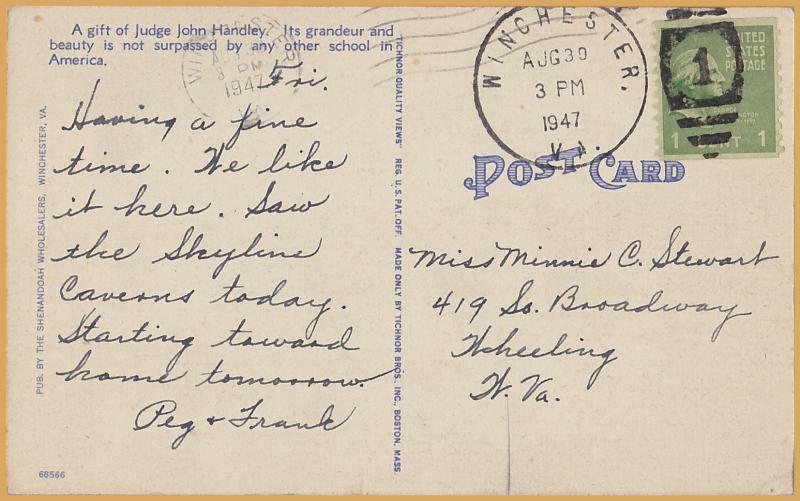 A gift of Judge John Handley. Its grandeur and
beauty is not surpassed by any other school in
America.
Fri.
Having a fine
time. We like
it here. Saw
the Skyline
Caverns today.
Starting toward
home tomorrow.
Peg + Frank
PUB. BY THE SHENANDOAH WHOLESALERS, WINCHESTER, VA.
68566
"TICHNOR QUALITY VIEWS" REG. U. S. PAT. OFF. MADE ONLY BY TICHNOR BROS., INC., BOSTON, MASS.
WINCHESTER
3 PM
1947
WINCHESTER,
AUG 30
3 PM
1947
VA.
UNITED
STATES
POSTAGE
1
1 CENT 1
POST CARD
Miss Minnie C. Stewart
419 So. Broadway
Wheeling
W. Va.